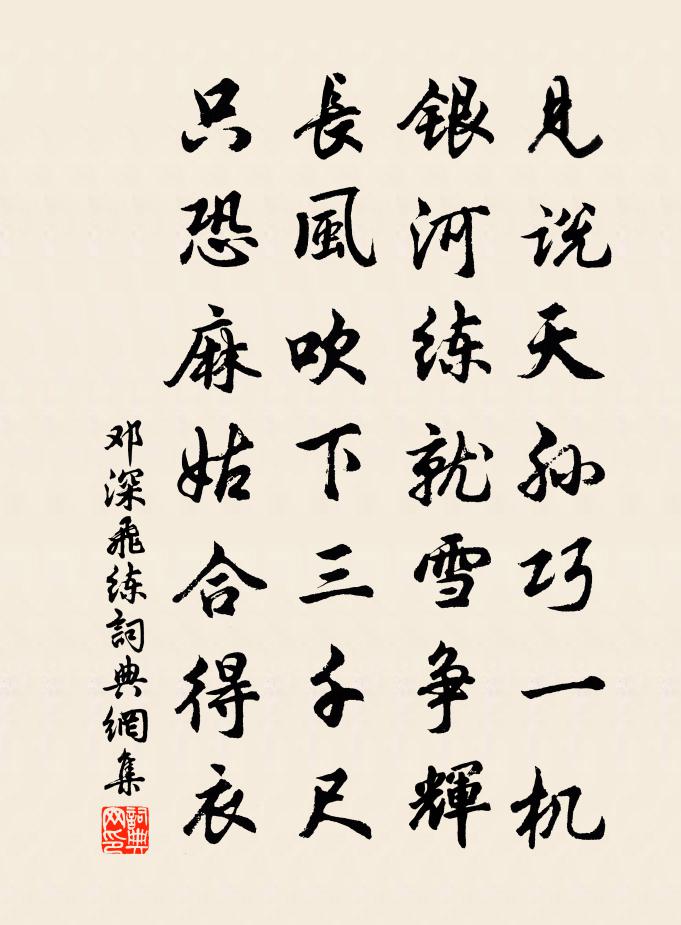 见说天孙巧一机
银河练就雪争輝
長風吹下三千尺
只恐麻姑合得衣
邓深飛练詞典網集
詞典
网印